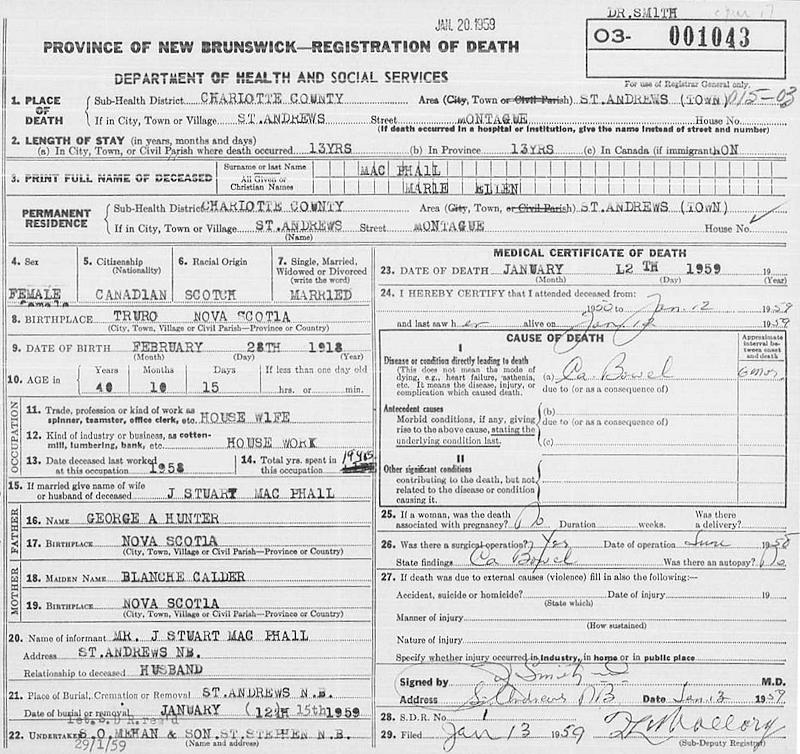 DR. SMITH
JAN. 20. 1959
PROVINCE OF NEW BRUNSWICK—REGISTRATION OF DEATH
O3- 001043
DEPARTMENT OF HEALTH AND SOCIAL SERVICES
For use of Registrar General only.
1. PLACE OF DEATH { Sub-Health District CHARLOTTE COUNTY Area (City, Town or Civil Parish) ST. ANDREWS (TOWN) 015-03
If in City, Town or Village ST. ANDREWS Street MONTAGUE House No.
(If death occurred in a hospital or institution, give the name instead of street and number)
2. LENGTH OF STAY (in years, months and days)
(a) In City, Town, or Civil Parish where death occurred 13YRS (b) In Province 13YRS (c) In Canada (if immigrant) NON
3. PRINT FULL NAME OF DECEASED Surname or last Name MAC PHAIL
All Given or Christian Names MARIE ELLEN
PERMANENT RESIDENCE { Sub-Health District CHARLOTTE COUNTY Area (City, Town, or Civil Parish) ST. ANDREWS (TOWN)
If in City, Town or Village ST. ANDREWS Street MONTAGUE House No.
(Name)
4. Sex FEMALE female
5. Citizenship (Nationality) CANADIAN
6. Racial Origin SCOTCH
7. Single, Married, Widowed or Divorced (write the word) MARRIED
8. BIRTHPLACE TRURO NOVA SCOTIA
(City, Town, Village or Civil Parish—Province or Country)
9. DATE OF BIRTH FEBRUARY 28TH 1918
(Month) (Day) (Year)
10. AGE in Years Months Days If less than one day old
40 10 15 hrs. or min.
OCCUPATION
11. Trade, profession or kind of work as spinner, teamster, office clerk, etc. HOUSE WIFE
12. Kind of industry or business, as cotton-mill, lumbering, bank, etc. HOUSE WORK
13. Date deceased last worked at this occupation 1958
14. Total yrs. spent in this occupation
15. If married give name of wife or husband of deceased J STUART MAC PHAIL
FATHER
16. NAME GEORGE A HUNTER
17. BIRTHPLACE NOVA SCOTIA
(City, Town, Village or Civil Parish—Province or Country)
MOTHER
18. MAIDEN NAME BLANCHE CALDER
19. BIRTHPLACE NOVA SCOTIA
(City, Town, Village or Civil Parish—Province or Country)
20. Name of informant MR. J STUART MAC PHAIL
Address ST. ANDREWS NB.
Relationship to deceased HUSBAND
21. Place of Burial, Cremation or Removal ST. ANDREWS N.B.
Date of burial or removal JANUARY (12TH 15th 1959
22. UNDERTAKER S.O. MEHAN & SON. ST. STEPHEN N.B.
29/1/59 (Name and address)
MEDICAL CERTIFICATE OF DEATH
23. DATE OF DEATH JANUARY 12 TH 1959 19
(Month) (Day) (Year)
24. I HEREBY CERTIFY that I attended deceased from:
1950 to Jan. 12 1959
and last saw her alive on Jan. 12 1959
CAUSE OF DEATH
Approximate interval between onset and death
I
Disease or condition directly leading to death
(This does not mean the mode of dying, e.g., heart failure, asthenia, etc. It means the disease, injury, or complication which caused death.
(a) Ca Bowel 6 mos.
due to (or as a consequence of)
Antecedent causes
Morbid conditions, if any, giving rise to the above cause, stating the underlying condition last.
(b)
due to (or as a consequence of)
(c)
II
Other significant conditions
contributing to the death, but not related to the disease or condition causing it.
25. If a woman, was the death associated with pregnancy? No Duration weeks. Was there a delivery?
26. Was there a surgical operation? Yes Date of operation June 1958
State findings Ca Bowel Was there an autopsy? No
27. If death was due to external causes (violence) fill in also the following:—
Accident, suicide or homicide? Date of injury 19
(State which)
Manner of injury
(How sustained)
Nature of injury
Specify whether injury occurred in industry, in home or in public place
Signed by Smith M.D.
Address St. Andrews NB Date Jan 13 1959
28. S.D.R. No.
29. Filed Jan 13 1959
(Sub-Deputy Registrar)